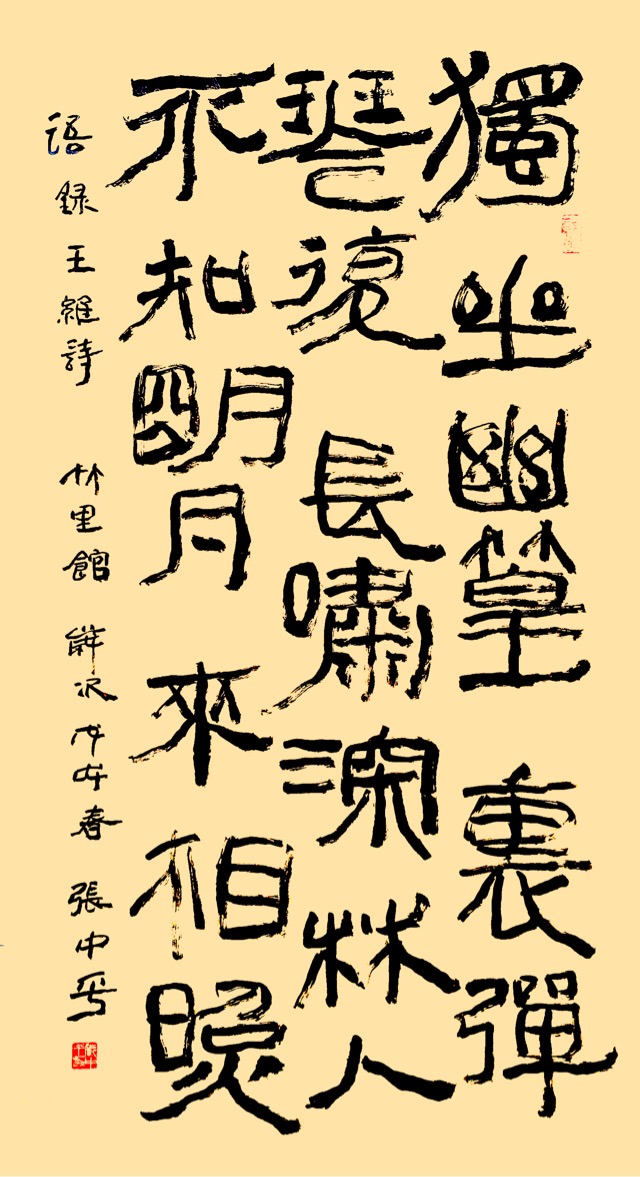 獨坐幽篁裏彈
琴復長嘯深林人
不知明月來相照
語録王維詩 竹里館 次春 張中